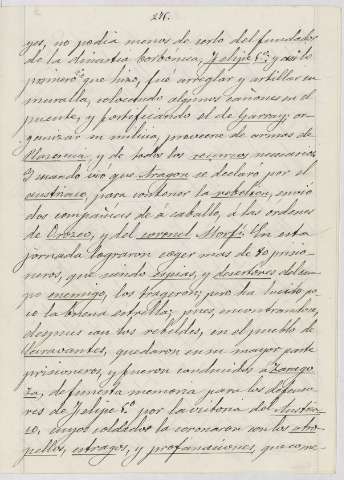 yes, no podia menos de serlo del fundador
de la dinastia borbónica, Felipe 5º; y asi lo
primero que hizo, fué arreglar y artillar su
muralla, colocando algunos cañones en el
puente, y fortificando el de Garray; or-
ganizar su milicia, proveerse de armas de
Plazencia, y de todos los recursos necesarios.
Y cuando vio que Aragon se declaro por el
austriaco, para contener la rebelion, envió
dos compañias de a caballo, a las ordenes
de Orozco, y del coronel Morfi. En esta
jornada lograron coger mas de 80 prisio-
neros, que siendo Espias, y desertores del cam-
po enemigo, los trageron; pero ha lucido po-
co la buena estrella; pues, encontrandose
despues con los rebeldes, en el pueblo de
Caravantes, quedaron en su mayor parte
prisioneros, y fueron conducidos a Zarago-
za, de funesta memoria para los defenso-
res de Felipe 5º por la vitoria del Austria-
co, cuyos soldados la coronaron con los atro-
pellos, estragos, y profanaciones, que come-